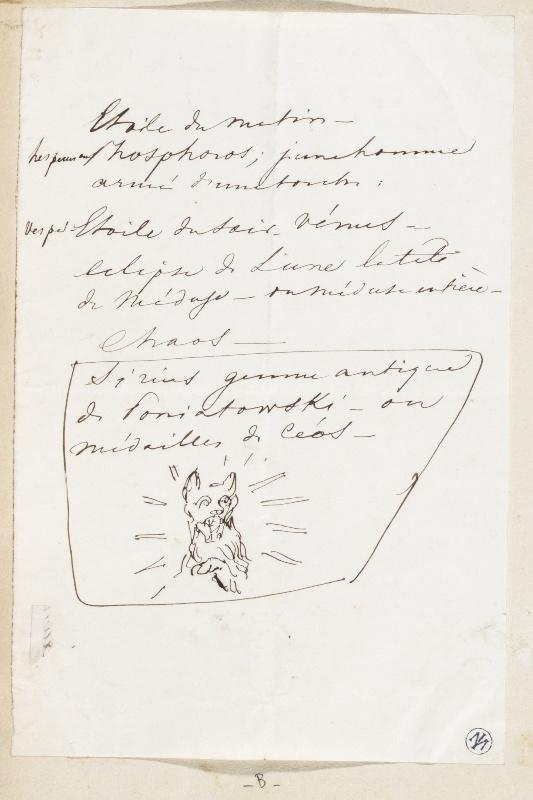 Etoile du matin —
Phosphoros; jeune homme
armé d'une torche :
Vesper Etoile du soir. Vénus —
eclipse de Lune la tête
de Méduse — ou méduse entière —
Chaos —
Sirius gemme antique
de Poniatowski — ou
médailles de Céos —
— B —